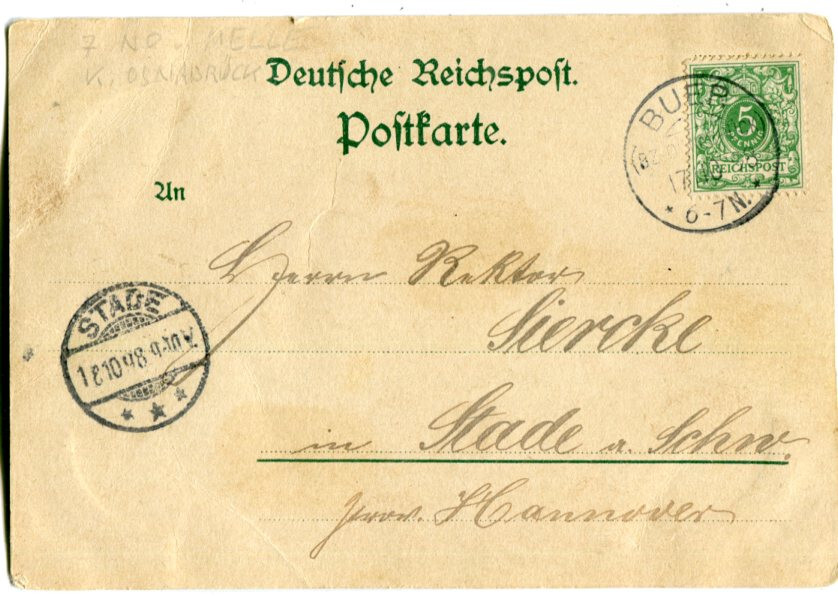 7 NO. MELLE
K. OSNABRÜCK
Deutsche Reichspost.
Postkarte.
An
BUER
5
PFENNIG
REICHSPOST
17
6-7N.
Herrn Rektor
Siercke
STADE
in Stade a. Schw.
Prov. Hannover